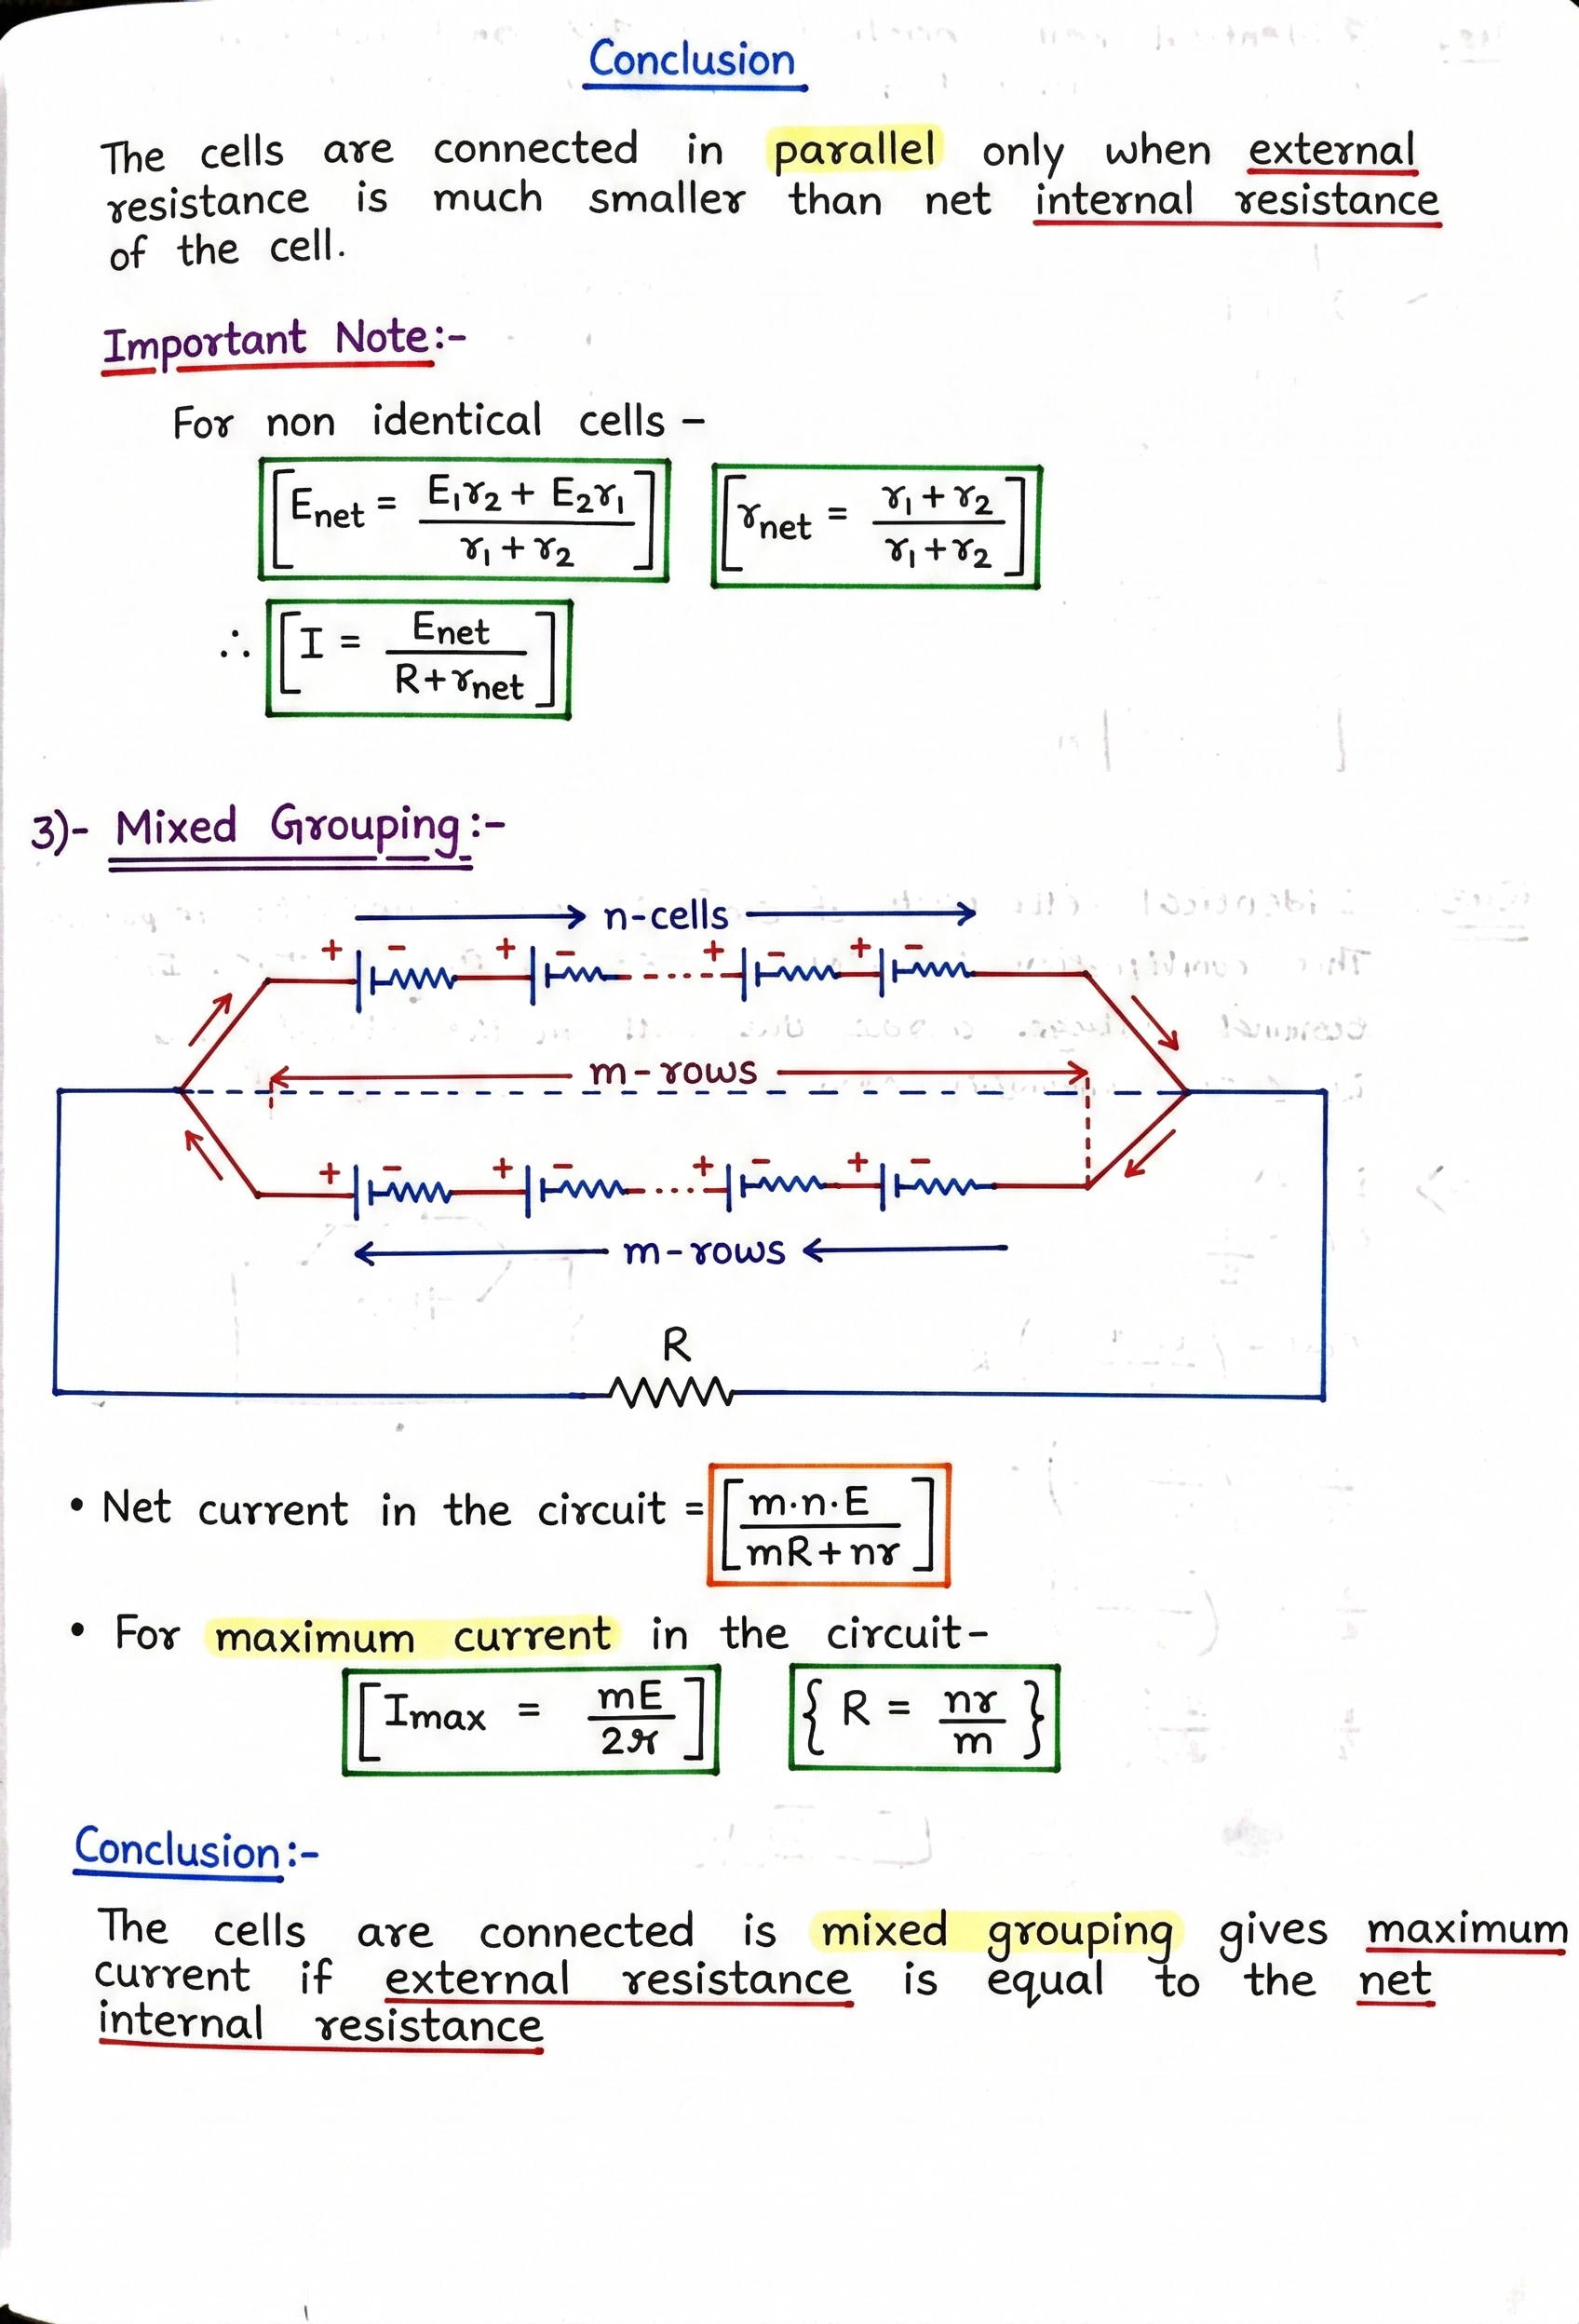 Conclusion
The cells are connected in parallel only when external
resistance is much smaller than net internal resistance
of the cell.
Important Note:-
For non identical cells –
[Enet = E₁r₂ + E₂r₁ / r₁ + r₂] [rnet = r₁ + r₂ / r₁ + r₂]
∴ [I = Enet / R + rnet]
3)- Mixed Grouping:-
n-cells
+ - + - + - + -
m-rows
+ - + - + - + -
m-rows
R
• Net current in the circuit = [m·n·E / mR + nr]
• For maximum current in the circuit-
[Imax = mE / 2r] {R = nr / m}
Conclusion:-
The cells are connected is mixed grouping gives maximum
current if external resistance is equal to the net
internal resistance